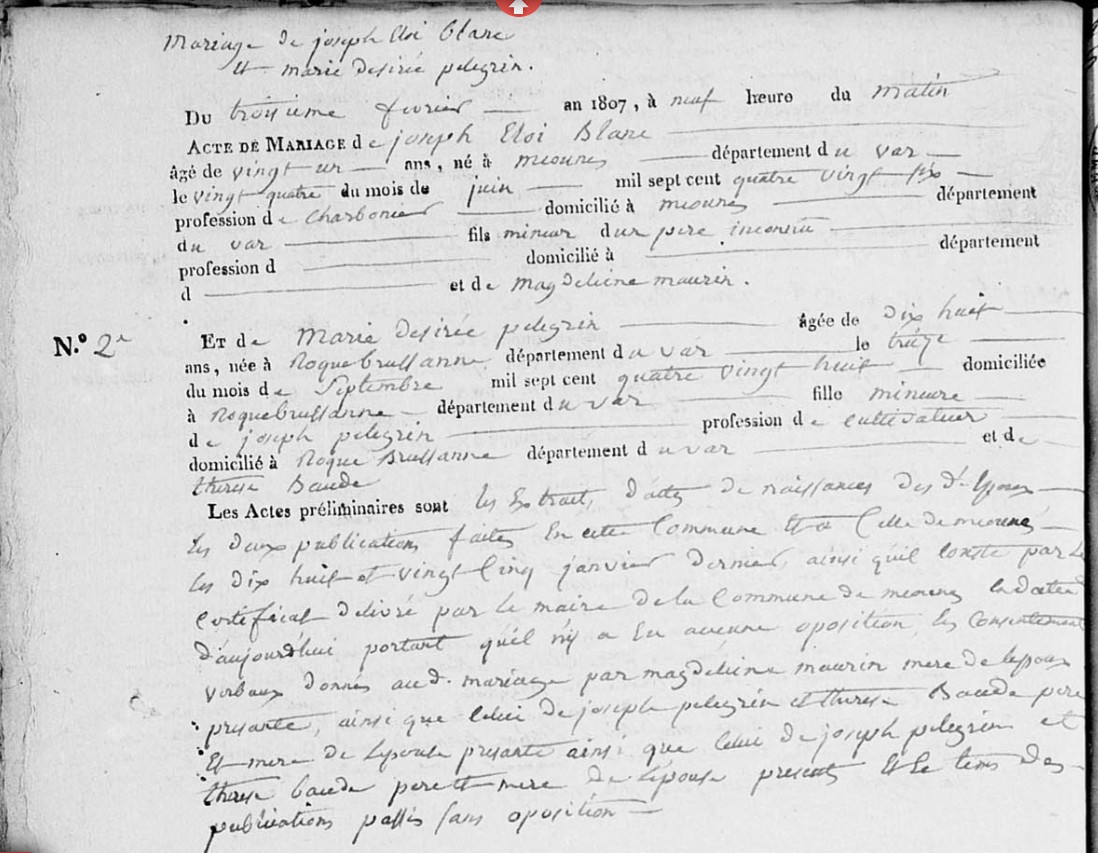 Mariage de joseph Eloi blanc
et marie desirée pelegrin.
Du troisieme fevrier an 1807, à neuf heure du matin
ACTE DE MARIAGE de joseph Eloi Blanc
âgé de vingt un ans, né à meounes département du var
le vingt quatre du mois de juin mil sept cent quatre vingt six
profession de charbonier domicilié à meounes département
du var fils mineur d'un pere inconnu
profession d domicilié à département
d et de magdeleine maurin.
N.º 2
ET de Marie desirée pelegrin âgée de dix huit
ans, née à Roquebrussanne département du var le treize
du mois de Septembre mil sept cent quatre vingt huit domiciliée
à Roquebrussanne département du var fille mineure
de joseph pelegrin profession de cultivateur
domicilié à Roque Brussanne département du var et de
therese Baude
Les Actes préliminaires sont les Extraits d'actes de naissances des d.ts Epoux
les deux publications faites En cette Commune et a Celle de meounes
les dix huit et vingt Cinq janvier dernier, ainsi qu'il Conste par le
Certificat delivré par le maire de la Commune de meounes en datte
d'aujourd'hui portant qu'il n'y a Eu aucune oposition, les Consentement
verbaux donnés au d. mariage par magdeleine maurin mere de lepoux
presante, ainsi que Celui de joseph pelegrin et therese Baude pere
Et mere de Lepouse presante ainsi que Celui de joseph pelegrin et
therese baude pere et mere de Lepouse presents Et le tems des
publications passés sans oposition